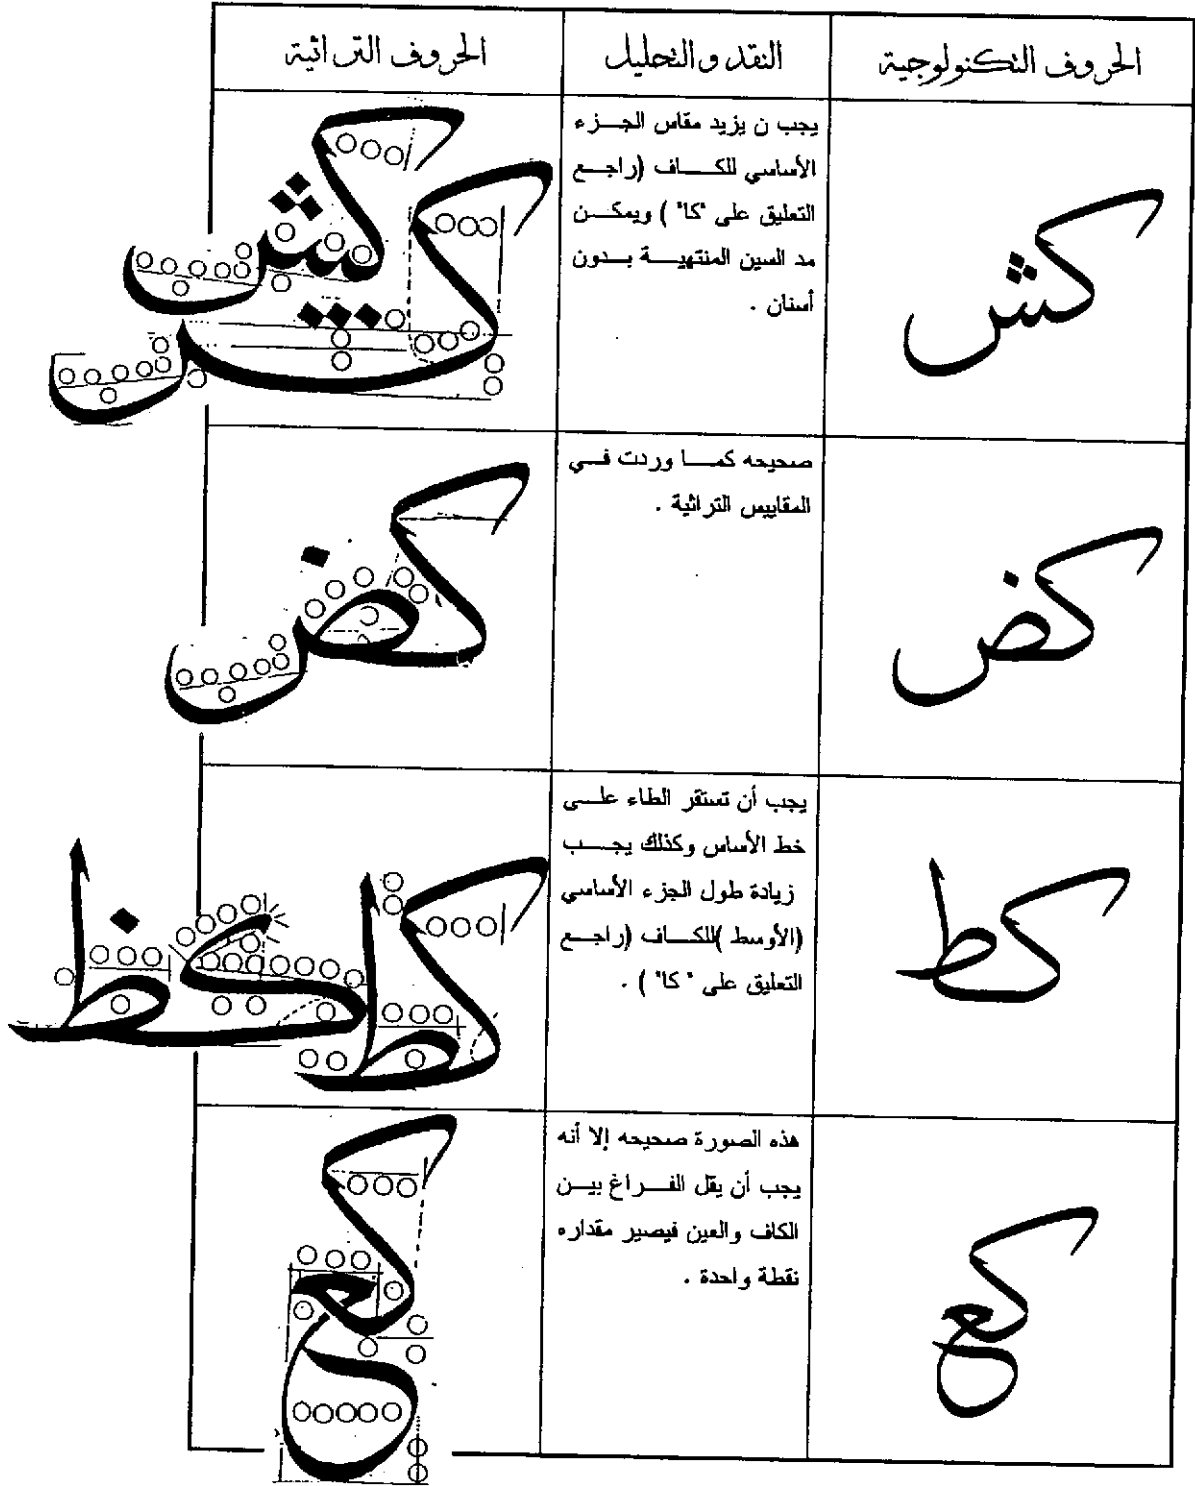 الحروف التكنولوجية
النقد والتحليل
الحروف التراثية
كش
يجب ن يزيد مقاس الجزء
الأساسي للكاف (راجع
التعليق على "كا" ) ويمكن
مد السين المنتهية بدون
أسنان .
كض
صحيحه كما وردت في
المقاييس التراثية .
كض
كط
يجب أن تستقر الطاء على
خط الأساس وكذلك يجب
زيادة طول الجزء الأساسي
(الأوسط )للكاف (راجع
التعليق على " كا" ) .
كط
كظ
كع
هذه الصورة صحيحه إلا أنه
يجب أن يقل الفراغ بين
الكاف والعين فيصير مقداره
نقطة واحدة .
كع